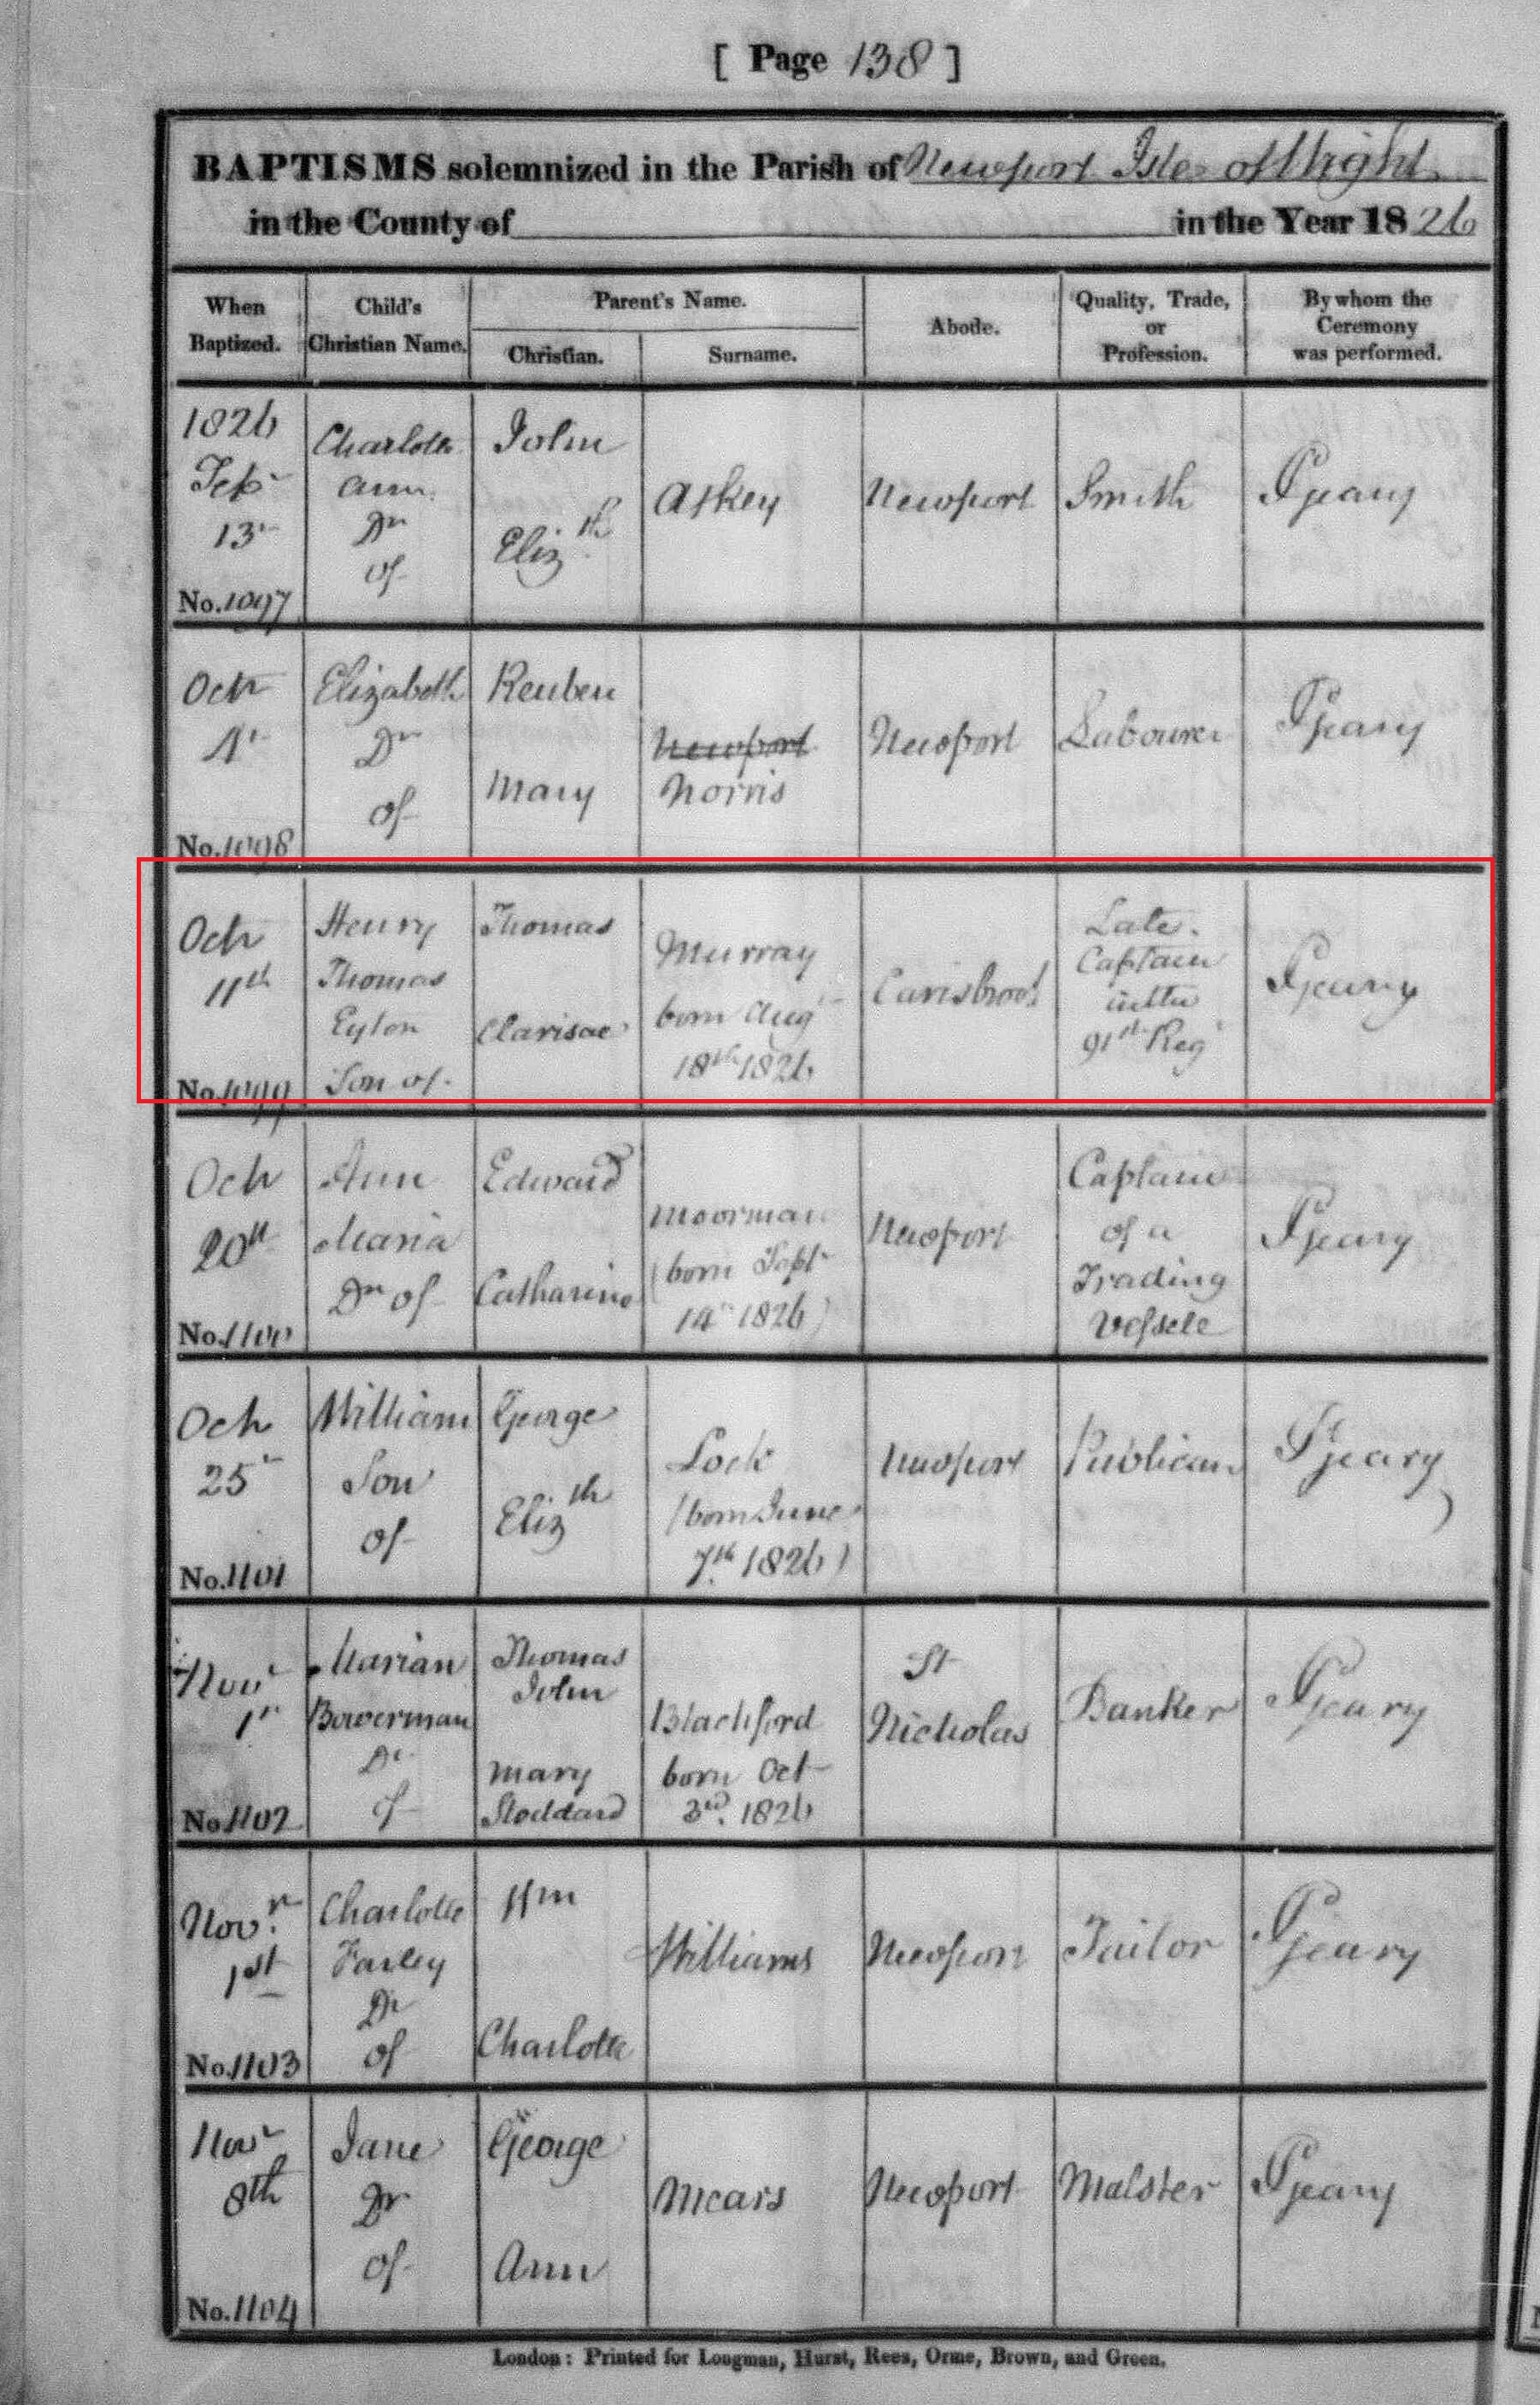 [ Page 138 ]
BAPTISMS solemnized in the Parish of Newport Isle of Wight
in the County of in the Year 1826
When Baptized.
Child's Christian Name.
Parent's Name.
Christian.
Surname.
Abode.
Quality, Trade, or Profession.
By whom the Ceremony was performed.
1826
Feb
13
No. 1097
Charlotte
Ann
Dr
of
John
Elizth
Askey
Newport
Smith
Geary
Octr
4
No. 1098
Elizabeth
Dr
of
Reuben
Mary
Newport
Norris
Newport
Labourer
Geary
Octr
11th
No. 1099
Henry
Thomas
Eyton
Son of
Thomas
Clarisae
Murray
born Augt
18th 1826
Carisbrook
Late
Captain
in the
91st Regt
Geary
Octr
20th
No. 1100
Ann
Maria
Dr of
Edward
Catharine
Moorman
(born Sept
14 1826)
Newport
Captain
of a
Trading
Vessele
Geary
Octr
25
No. 1101
William
Son
of
George
Elizth
Lock
(born June
7th 1826)
Newport
Publican
Geary
Novr
1st
No. 1102
Marian
Bowerman
Dr
of
Thomas
John
Mary
Stoddard
Blachford
born Oct
3rd 1826
St
Nicholas
Banker
Geary
Novr
1st
No. 1103
Charlotte
Farley
Dr
of
Wm
Charlotte
Williams
Newport
Tailor
Geary
Novr
8th
No. 1104
Jane
Dr
of
George
Ann
Mears
Newport
Malster
Geary
London: Printed for Longman, Hurst, Rees, Orme, Brown, and Green.